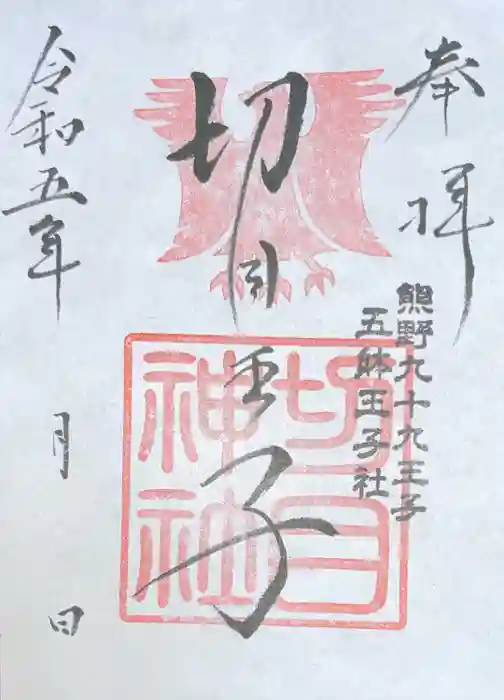 奉拝
熊野九十九王子
五躰王子社
切目王子
切目
神社
令和五年 月 日